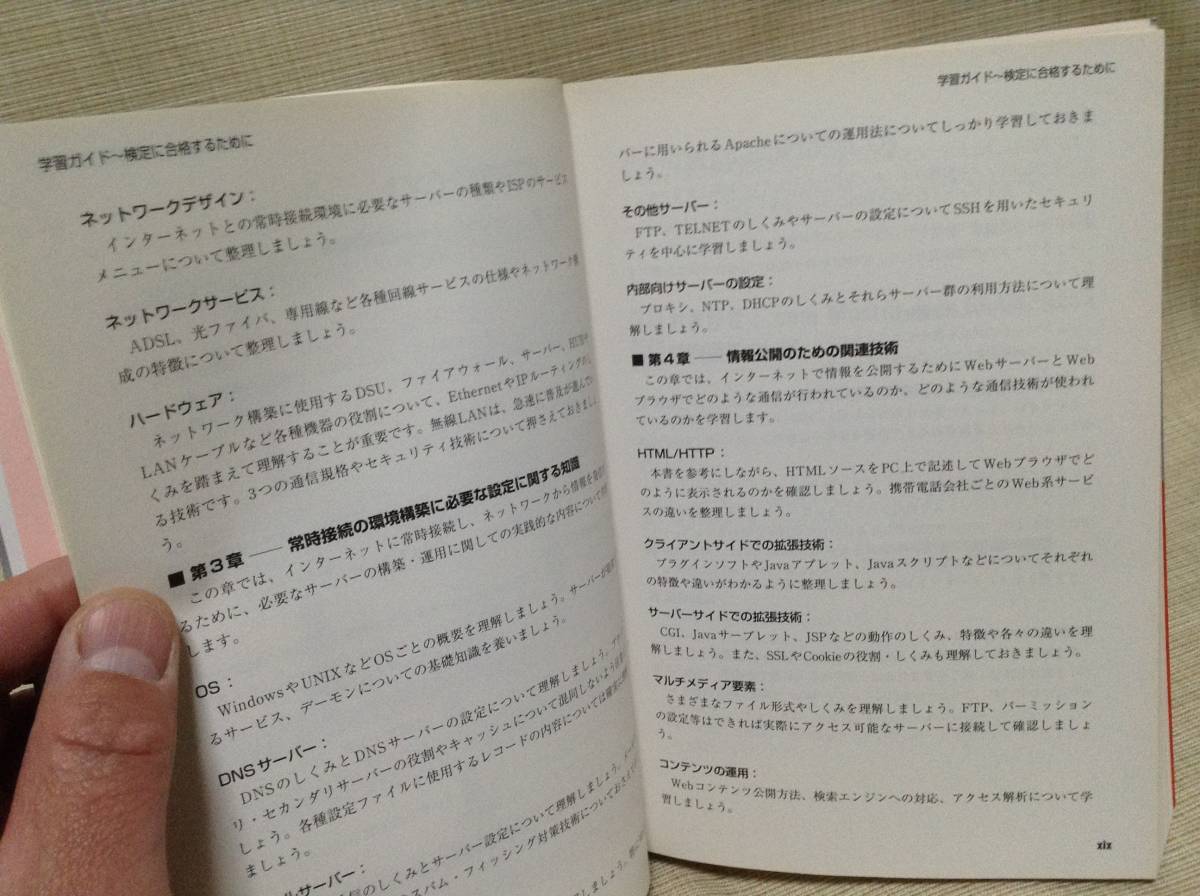 学習ガイド〜検定に合格するために
ネットワークデザイン：
インターネットとの常時接続環境に必要なサーバーの種類やISPのサービス
メニューについて整理しましょう。
ネットワークサービス：
ADSL、光ファイバ、専用線など各種回線サービスの仕様やネットワーク構
成の特徴について整理しましょう。
ハードウェア：
ネットワーク構築に使用するDSU、ファイアウォール、サーバー、HUBや
LANケーブルなど各種機器の役割について、EthernetやIPルーティングの
くみを踏まえて理解することが重要です。無線LANは、急速に普及が進んでい
る技術です。3つの通信規格やセキュリティ技術について押さえておきましょ
う。
■ 第3章 ── 常時接続の環境構築に必要な設定に関する知識
この章では、インターネットに常時接続し、ネットワークから情報を発信す
るために、必要なサーバーの構築・運用に関しての実践的な内容について
します。
OS：
WindowsやUNIXなどOSごとの概要を理解しましょう。サーバーが
るサービス、デーモンについての基礎知識を養いましょう。
DNSサーバー：
DNSのしくみとDNSサーバーの設定について理解しましょう。
リ・セカンダリサーバーの役割やキャッシュについて混同しないよう
しょう。各種設定ファイルに使用するレコードの内容については確実に
ましょう。
ルサーバー：
信のしくみとサーバー設定について理解しましょう。
スパム・フィッシング対策技術についておさえて
学習ガイド〜検定に合格するために
バーに用いられるApacheについての運用法についてしっかり学習しておきま
しょう。
その他サーバー：
FTP、TELNETのしくみやサーバーの設定についてSSHを用いたセキュリ
ティを中心に学習しましょう。
内部向けサーバーの設定：
プロキシ、NTP、DHCPのしくみとそれらサーバー群の利用方法について理
解しましょう。
■ 第4章 ── 情報公開のための関連技術
この章では、インターネットで情報を公開するためにWebサーバーとWeb
ブラウザでどのような通信が行われているのか、どのような通信技術が使われ
ているのかを学習します。
HTML/HTTP：
本書を参考にしながら、HTMLソースをPC上で記述してWebブラウザでど
のように表示されるのかを確認しましょう。携帯電話会社ごとのWeb系サービ
スの違いを整理しましょう。
クライアントサイドでの拡張技術：
プラグインソフトやJavaアプレット、Javaスクリプトなどについてそれぞれ
の特徴や違いがわかるように整理しましょう。
サーバーサイドでの拡張技術：
CGI、Javaサーブレット、JSPなどの動作のしくみ、特徴や各々の違いを理
解しましょう。また、SSLやCookieの役割・しくみも理解しておきましょう。
マルチメディア要素：
さまざまなファイル形式やしくみを理解しましょう。FTP、パーミッション
の設定等はできれば実際にアクセス可能なサーバーに接続して確認しましょ
う。
コンテンツの運用：
Webコンテンツ公開方法、検索エンジンへの対応、アクセス解析について学
習しましょう。
xix